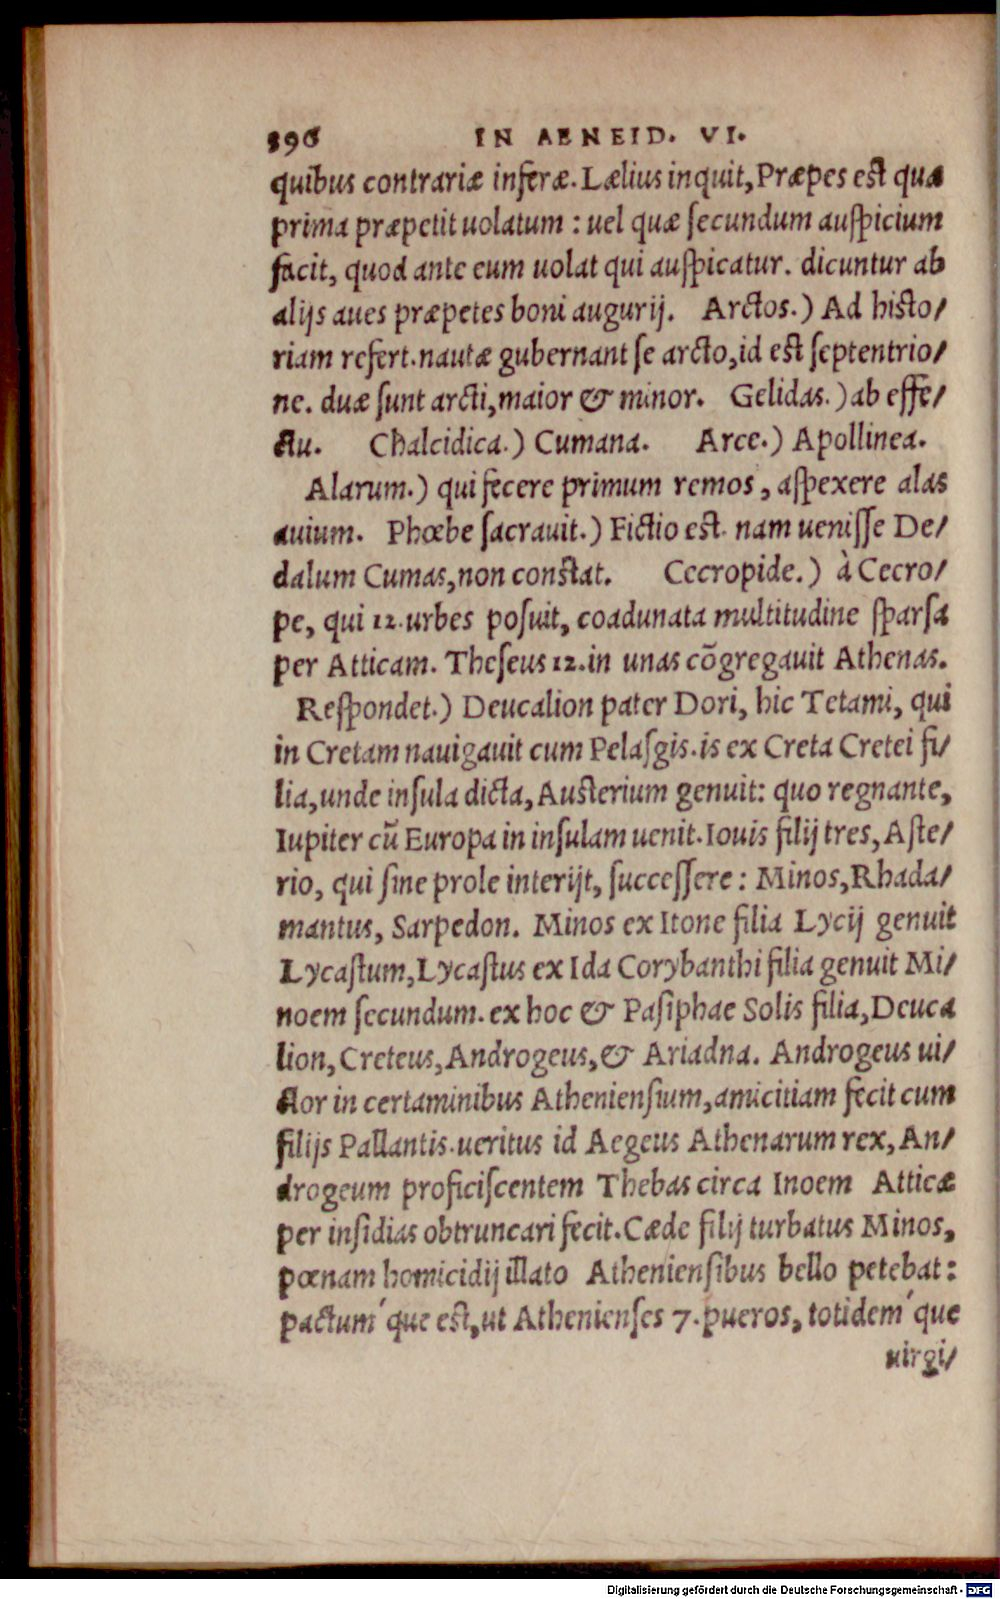 396 IN AENEID. VI.
quibus contrariæ inferæ. Lælius inquit, Præpes est quæ
prima præpetit uolatum : uel quæ secundum auspicium
facit, quod ante eum uolat qui auspicatur. dicuntur ab
alijs aues præpetes boni augurij. Arctos.) Ad histo/
riam refert. nautæ gubernant se arcto, id est septentrio/
ne. duæ sunt arcti, maior & minor. Gelidas.) ab effe/
ctu. Chalcidica.) Cumana. Arce.) Apollinea.
Alarum.) qui fecere primum remos, aspexere alas
auium. Phœbe sacrauit.) Fictio est. nam uenisse De/
dalum Cumas, non constat. Cecropide.) à Cecro/
pe, qui 12. urbes posuit, coadunata multitudine sparsa
per Atticam. Theseus 12. in unas cõgregauit Athenas.
Respondet.) Deucalion pater Dori, hic Tetami, qui
in Cretam nauigauit cum Pelasgis. is ex Creta Cretei fi/
lia, unde insula dicta, Austerium genuit: quo regnante,
Iupiter cũ Europa in insulam uenit. Iouis filij tres, Aste/
rio, qui sine prole interijt, successere : Minos, Rhada/
mantus, Sarpedon. Minos ex Itone filia Lycij genuit
Lycastum, Lycastus ex Ida Corybanthi filia genuit Mi/
noem secundum. ex hoc & Pasiphae Solis filia, Deuca
lion, Creteus, Androgeus, & Ariadna. Androgeus ui/
ctor in certaminibus Atheniensium, amicitiam fecit cum
filijs Pallantis. ueritus id Aegeus Athenarum rex, An/
drogeum proficiscentem Thebas circa Inoem Atticæ
per insidias obtruncari fecit. Cæde filij turbatus Minos,
pœnam homicidij illato Atheniensibus bello petebat:
pactum´que est, ut Athenienses 7. pueros, totidem´que
uirgi/
Digitalisierung gefördert durch die Deutsche Forschungsgemeinschaft - DFG